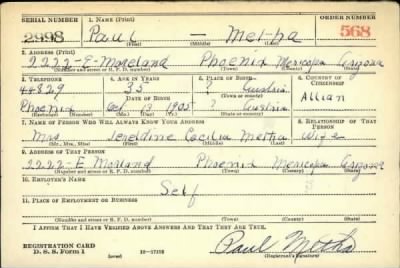 SERIAL NUMBER 1. NAME (Print) ORDER NUMBER
2998 Paul — Metha 568
(First) (Middle) (Last)
2. ADDRESS (Print)
2222-E-Moreland Phoenix Maricopa Arizona
(Number and street or R. F. D. number) (Town) (County) (State)
3. TELEPHONE 4. AGE IN YEARS 5. PLACE OF BIRTH 6. COUNTRY OF CITIZENSHIP
48829 35 ? Austria
Phoenix DATE OF BIRTH (Town or county) Allian
Oct 13 1905 ? Austria
7. NAME OF PERSON WHO WILL ALWAYS KNOW YOUR ADDRESS 8. RELATIONSHIP OF THAT PERSON
Mrs Jeraldine Cecilia Metha Wife
(Mr., Mrs., Miss) (First) (Middle) (Last)
9. ADDRESS OF THAT PERSON
2222-E Morland Phoenix Maricopa Arizona
(Number and street or R. F. D. number) (Town) (County) (State)
10. EMPLOYER'S NAME
Self
11. PLACE OF EMPLOYMENT OR BUSINESS
(Number and street or R. F. D. number) (Town) (County) (State)
I AFFIRM THAT I HAVE VERIFIED ABOVE ANSWERS AND THAT THEY ARE TRUE.
REGISTRATION CARD
D. S. S. Form 1 (over) Paul Metha
(Registrant's signature)